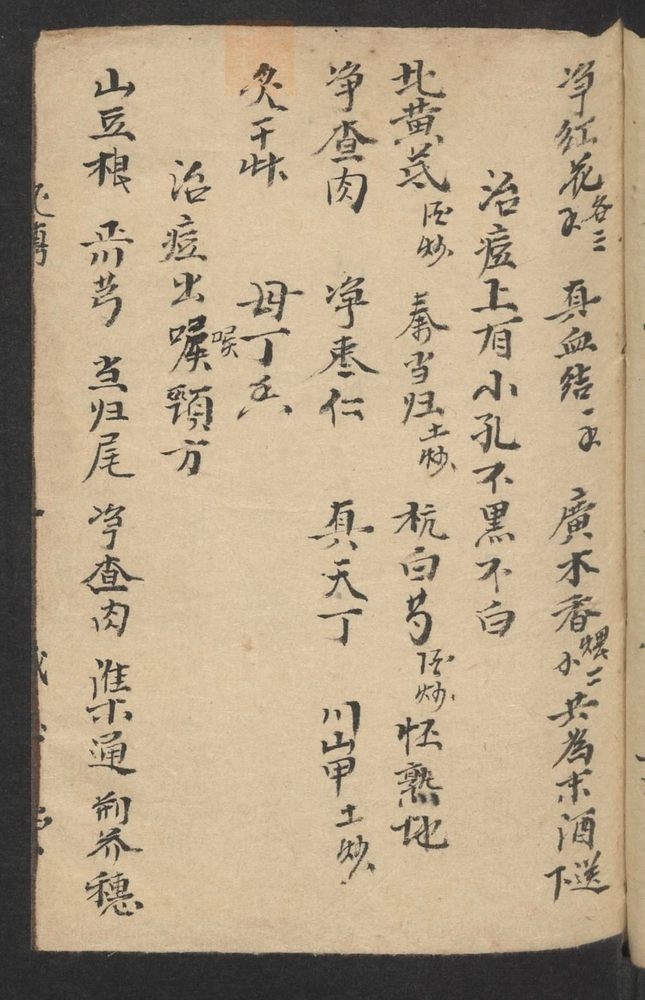 净红花各二 真血结一 廣木香煨二 共為末酒送下
治痘上有小孔不黑不白
北黄芪 酒炒 秦当归土炒 杭白芍 酒炒 怀熟地
净查肉 净枣仁 真天丁 川山甲土炒
炙干草 母丁香
治痘出喉頸方
山豆根 正川芎 当归尾 净查肉 淮木通 荆芥穗